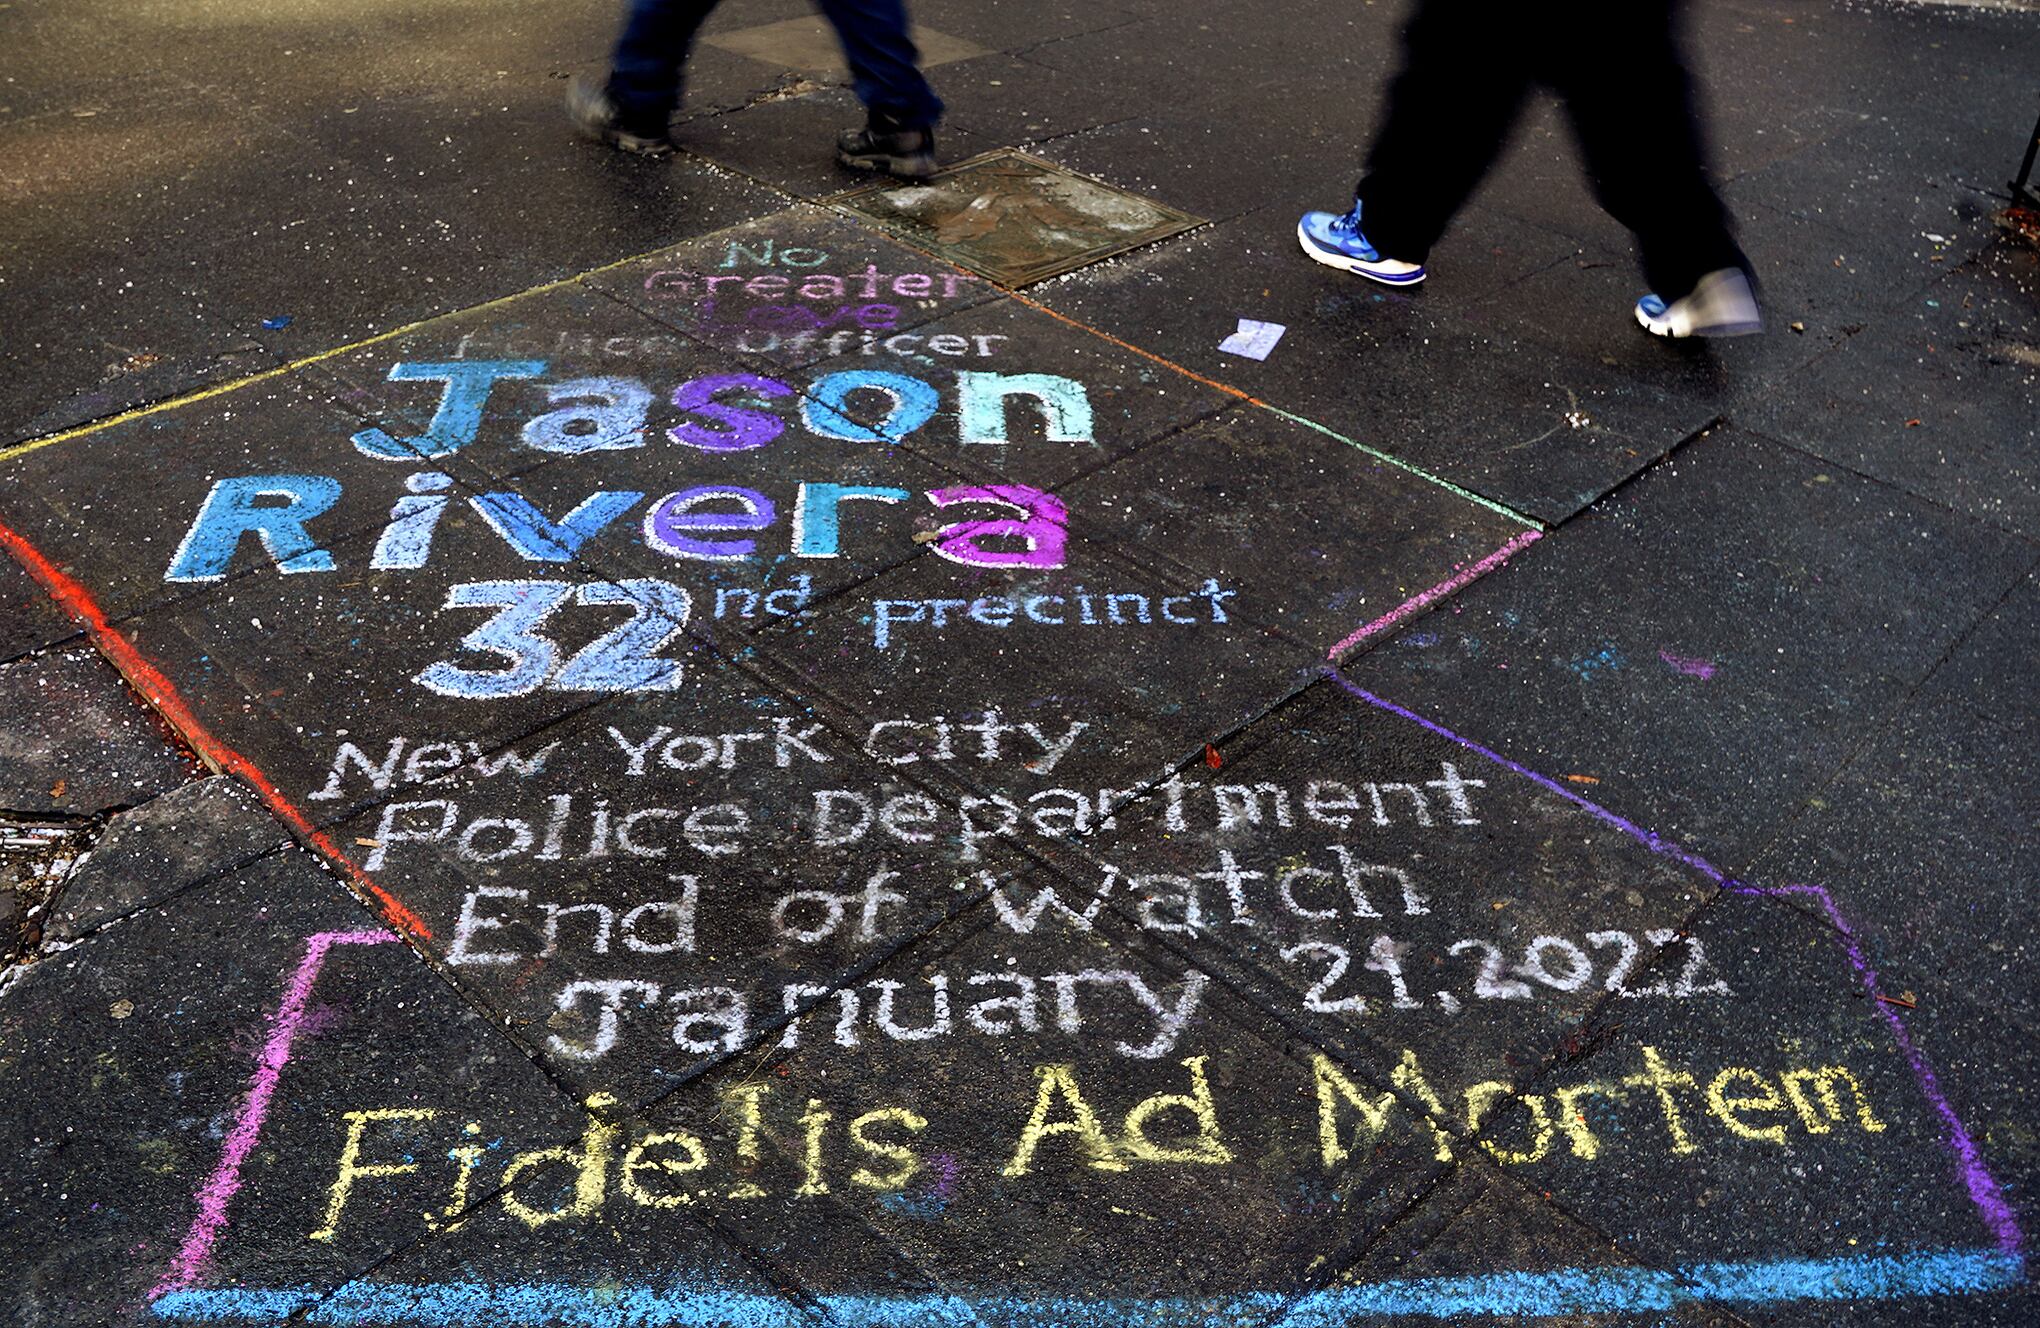 No
Greater
Love"
Police Officer
Jason
Rivera
32nd precinct
New York City
Police Department
End of Watch
January 21, 2022
Fidelis Ad Mortem